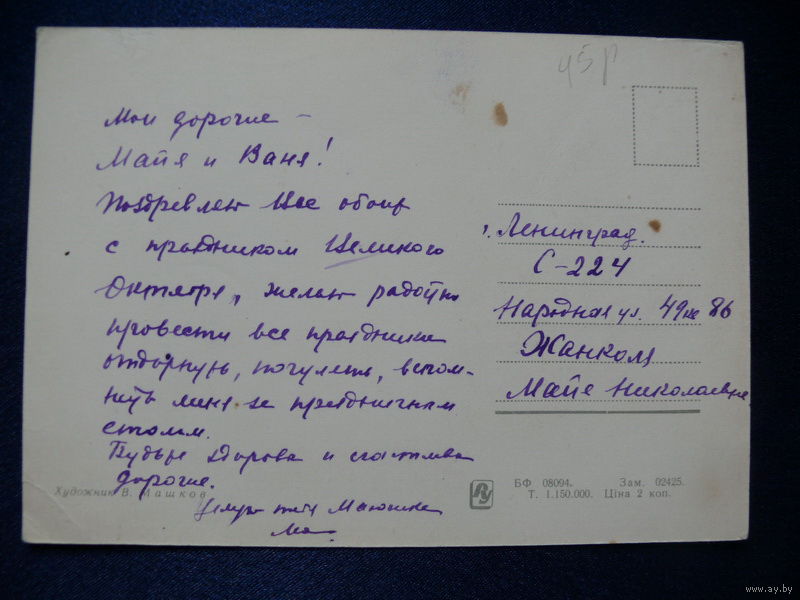 45 р
Мои дорогие –
Майя и Ваня!
Поздравляю Вас обоих
с праздником Великого
Октября, желаю радостно
провести все праздники
отдохнуть, погулять, вспом-
нуть меня за праздничным
столом.
Будьте здоровы и счастливы
дорогие.
Целую тетя
г. Ленинград.
С-224
Народная ул. 49 кв 86
Жанколя
Майе Николаевне
Художник В. Машков
БФ 08094. Зам. 02425.
Т. 1.150.000. Ціна 2 коп.
www.ay.by